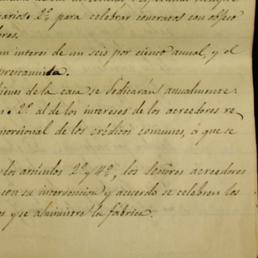 carios. 2º para celebrar contratos con objeto
bres.
un interes de un seis por ciento anual, y el
bienes de la casa se dedicarán anualmente
2º al de los intereses de los acreedores re
porcional de los créditos comunes, ó que se
los artículos 2º y 4º, los Señores acreedores
con su intervencion y acuerdo se celebren los
y se administre la fábrica.